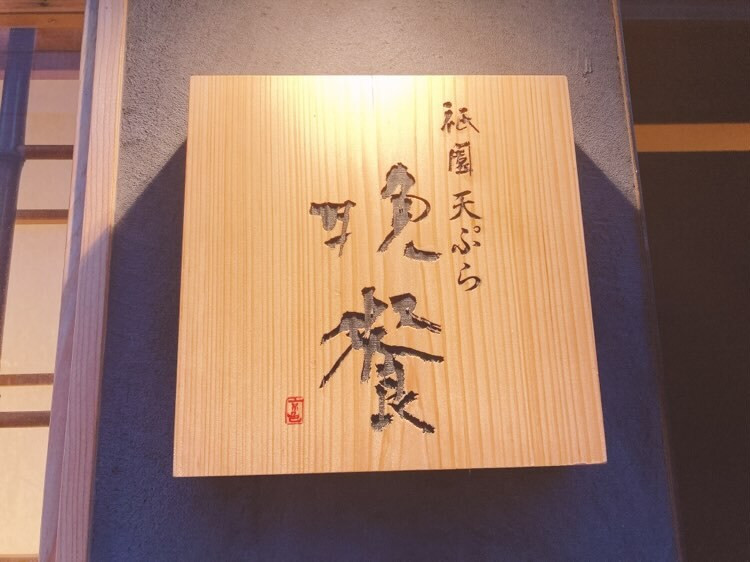 祇園天ぷら
晩餐